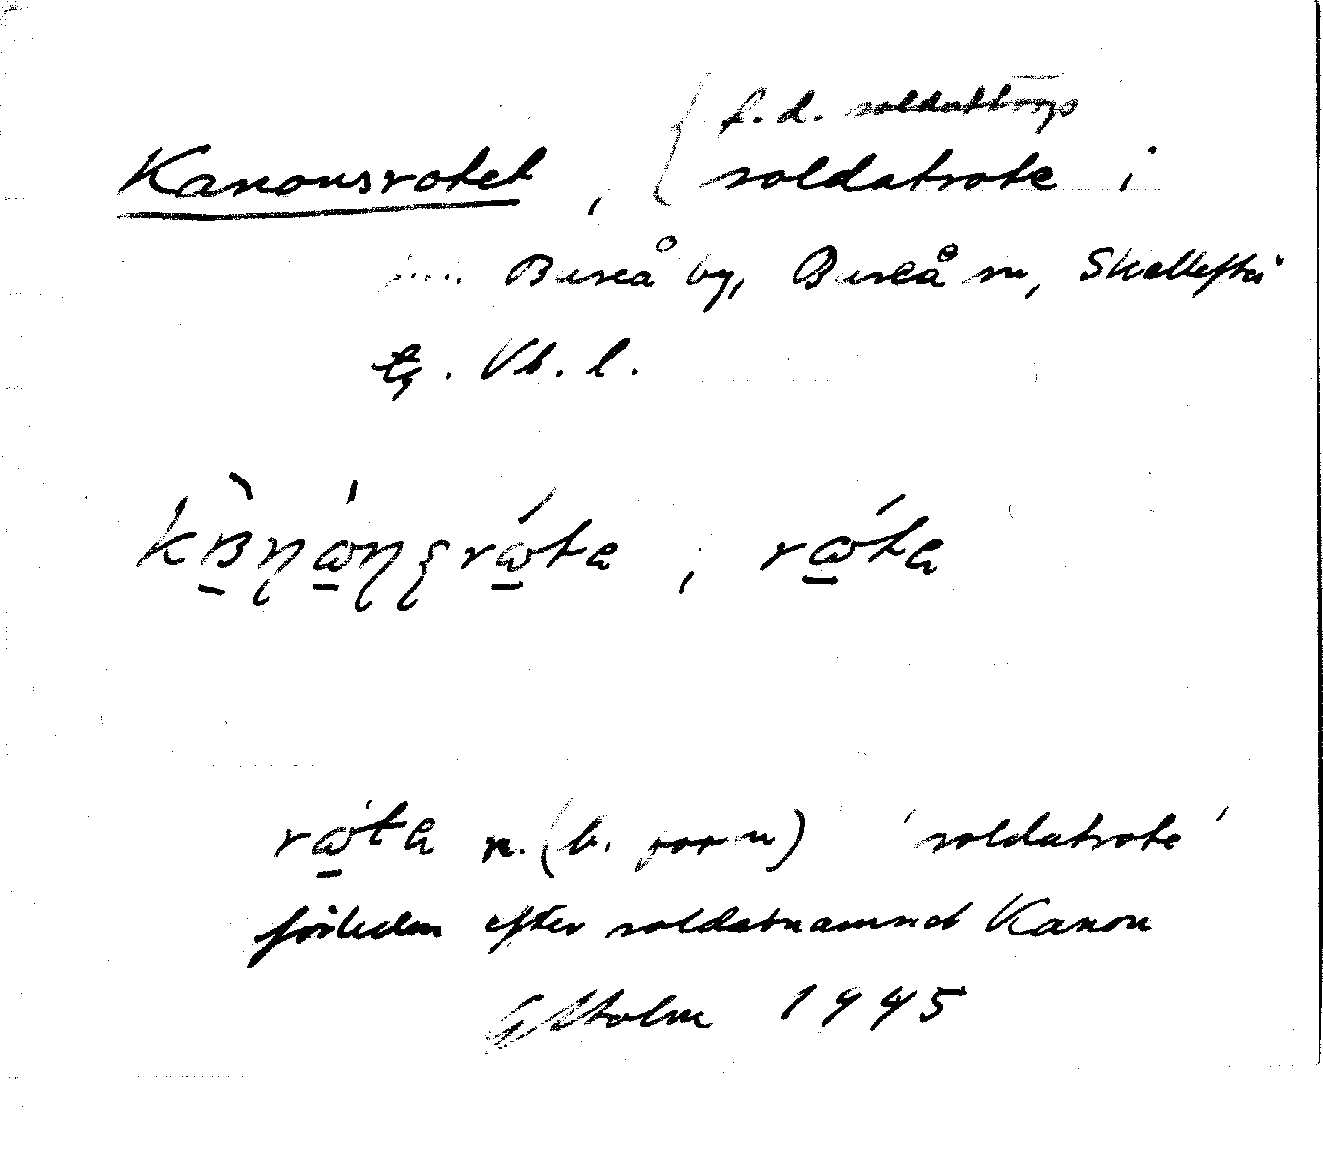 f.d. soldattorp
Kanonsrotet, { soldatrote i
Bureå by, Bureå sn, Skellefteå
tg. Vb. l.
rώ̲ta
rώ̲ta n. (b. form) 'soldatrote'
förleden efter soldatnamnet Kanon
Holm 1945